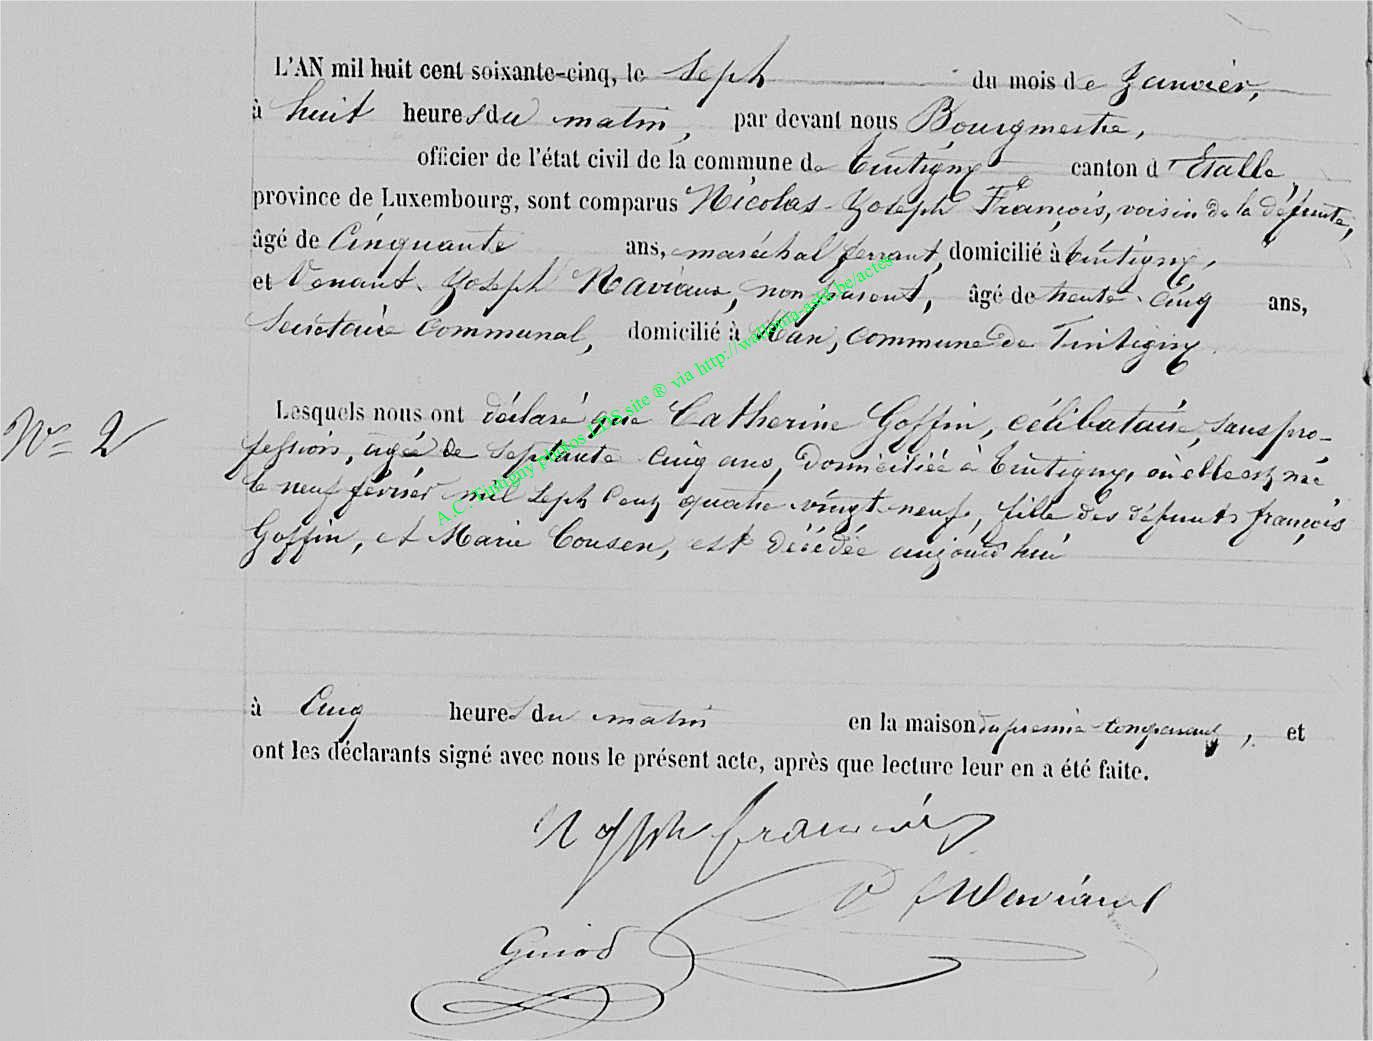 L'AN mil huit cent soixante-cinq, le Sept du mois de Janvier,
à huit heures du matin, par devant nous Bourgmestre,
officier de l'état civil de la commune de Tintigny canton d'Etalle,
province de Luxembourg, sont comparus Nicolas-Joseph François, voisin de la défunte,
âgé de Cinquante ans, maréchal ferrant, domicilié à Tintigny,
et Venant-Joseph Naviaux, non parent, âgé de trente-Cinq ans,
Secrétaire Communal, domicilié à Han, Commune de Tintigny.
N° 2
Lesquels nous ont déclaré que Catherine Goffin, célibataire, sans pro-
fession, âgée de Septante Cinq ans, Domiciliée à Tintigny, où elle est née
le neuf février mil Sept Cent quatre-vingt-neuf, fille des défunts françois
Goffin, et Marie Cousen, est décédée aujourd'hui
à Cinq heures du matin en la maison du premier comparant, et
ont les déclarants signé avec nous le présent acte, après que lecture leur en a été faite.
N Joseph françois
V J Naviaux
Guiod
A.C. Tintigny photos LDS site ® via http://wallonia-asbl.be/actes